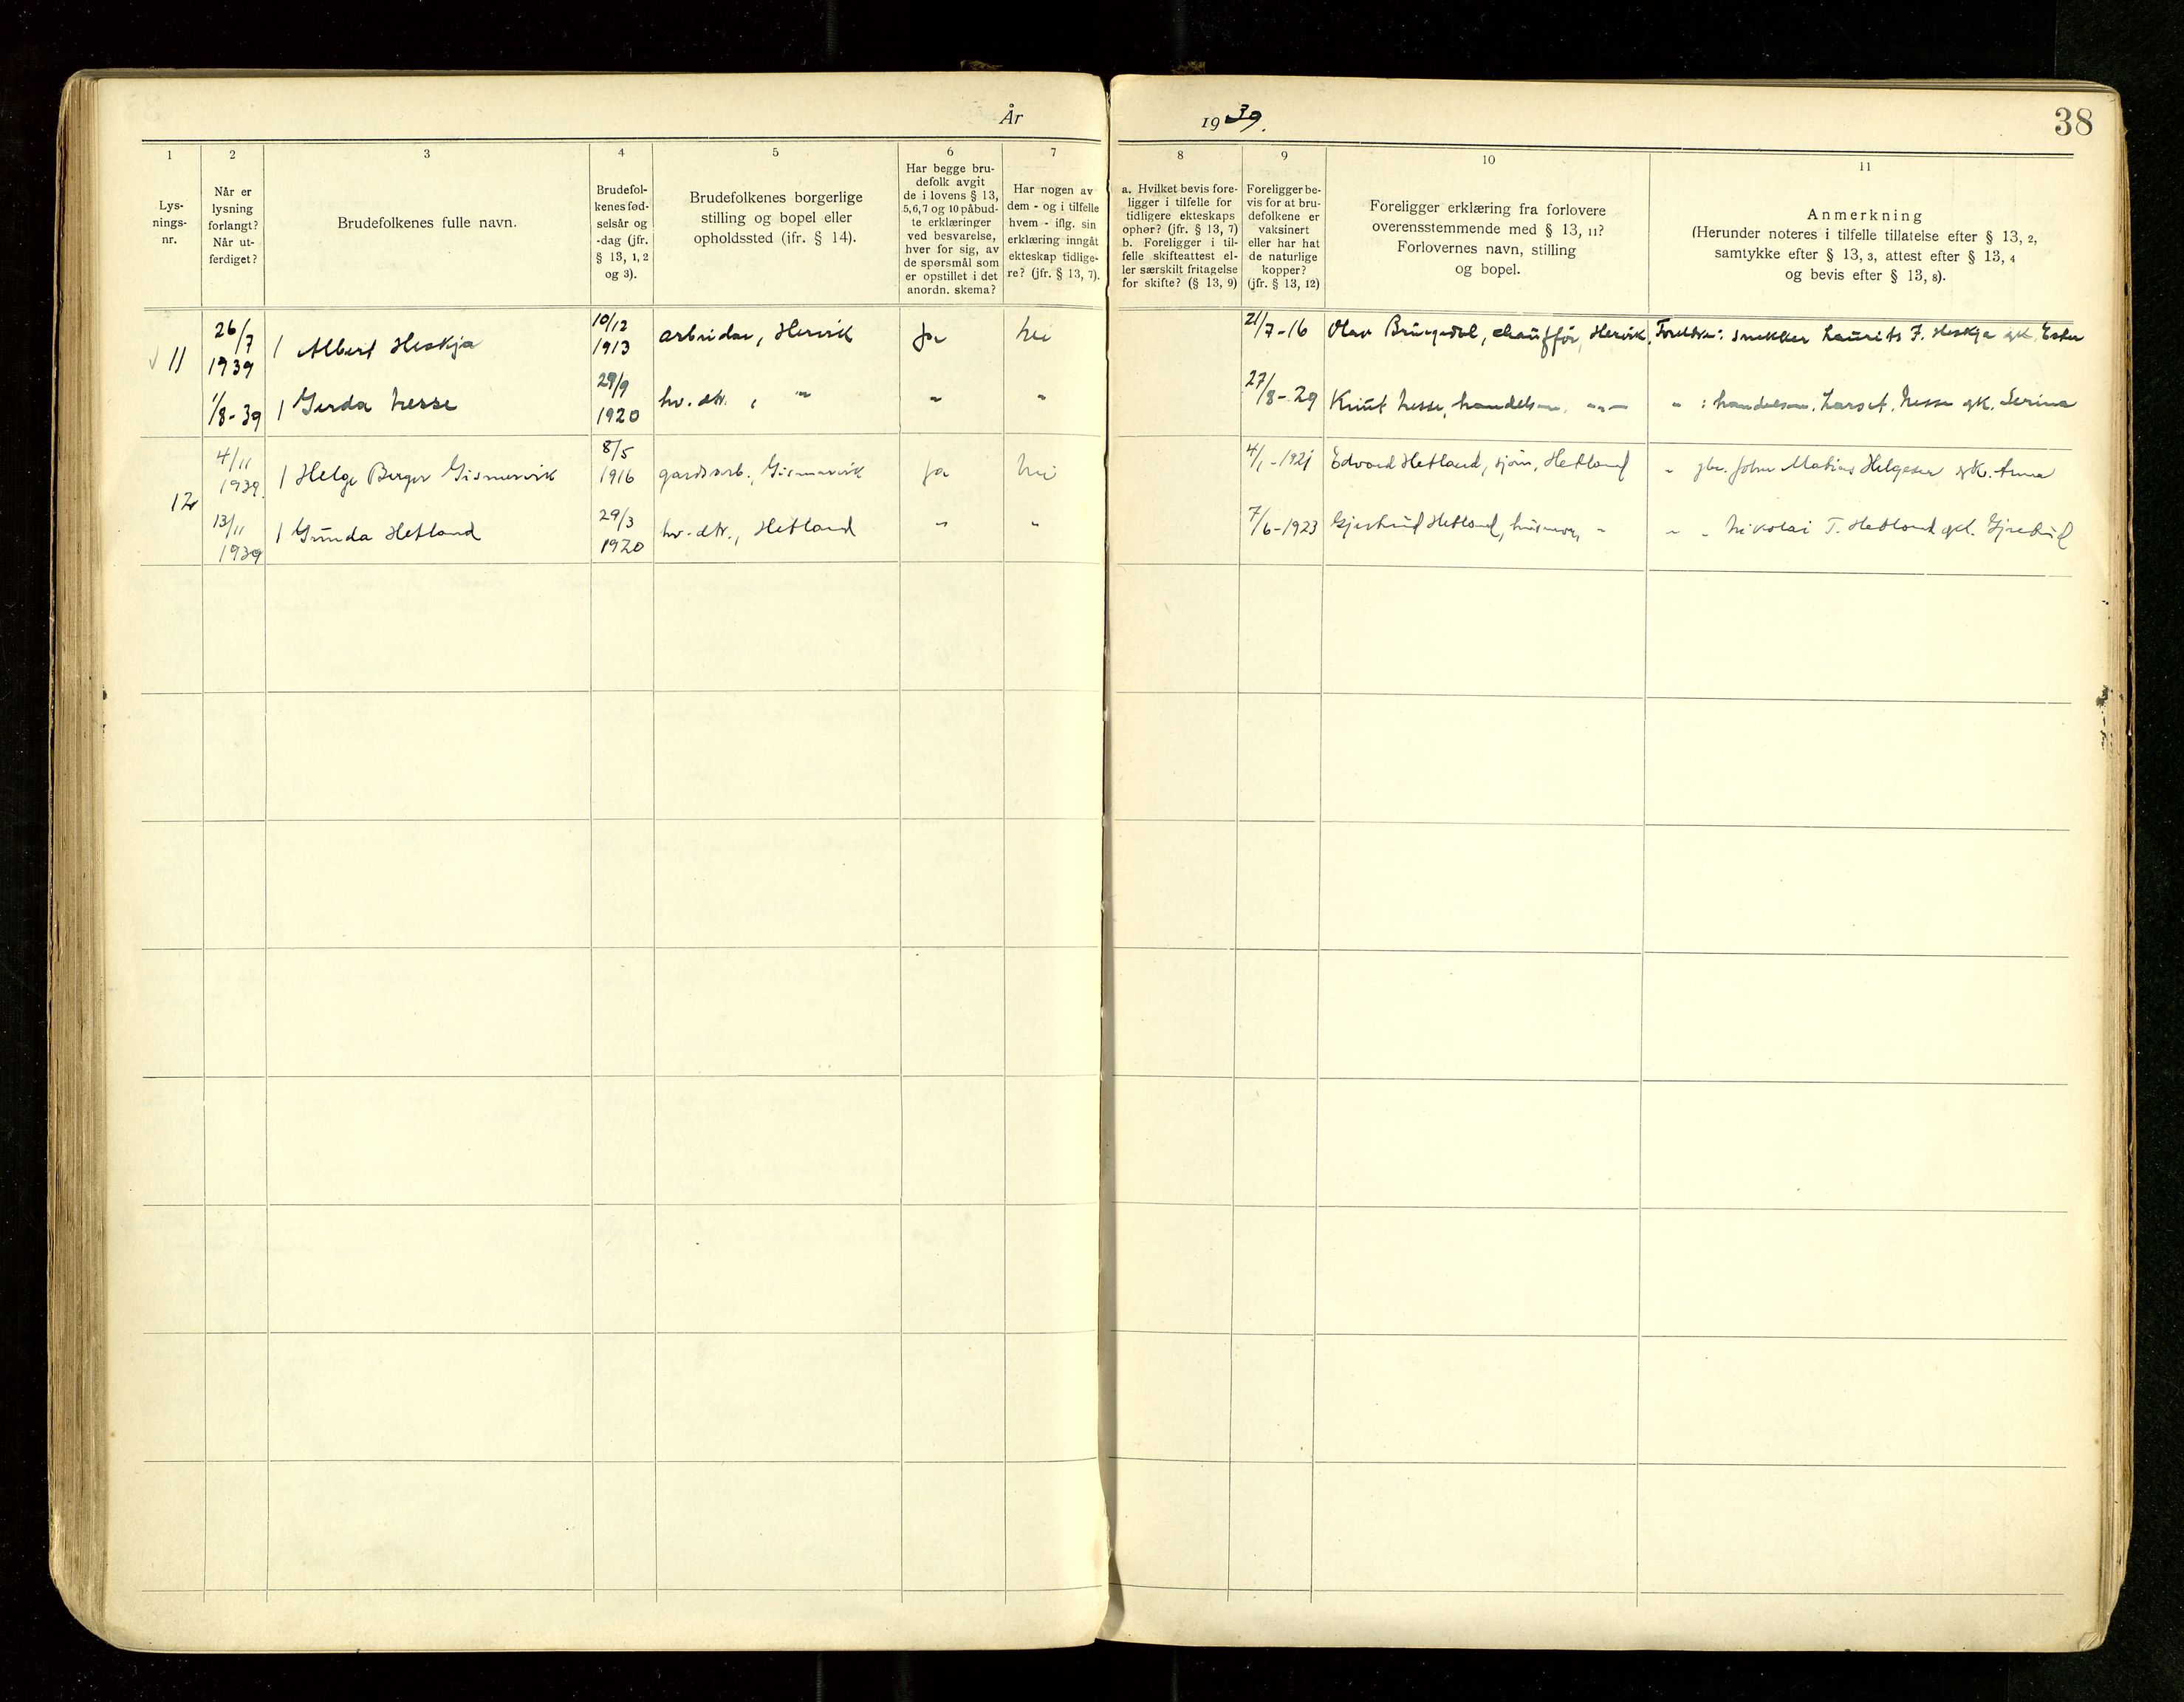 År 1939.
38
1 2 3 4 5 6 7 8 9 10 11
Lys-
nings-
nr.
Når er
lysning
forlangt?
Når ut-
ferdiget?
Brudefolkenes fulle navn.
Brudefol-
kenes fød-
selsår og
-dag (jfr.
§ 13, 1, 2
og 3).
Brudefolkenes borgerlige
stilling og bopel eller
opholdssted (ifr. § 14).
Har begge bru-
defolk avgit
de i lovens § 13,
5,6,7 og 10 påbud-
te erklæringer
ved besvarelse,
hver for sig, av
de spørsmål som
er opstillet i det
anordn. skema?
Har nogen av
dem - og i tilfelle
hvem - iflg. sin
erklæring inngåt
ekteskap tidlige-
re? (jfr. § 13, 7).
a. Hvilket bevis fore-
ligger i tilfelle for
tidligere ekteskaps
ophør? (jfr. § 13, 7)
b. Foreligger i til-
felle skifteattest el-
ler særskilt fritagelse
for skifte? (§ 13, 9)
Foreligger be-
vis for at bru-
defolkene er
vaksinert
eller har hat
de naturlige
kopper?
(jfr. § 13, 12)
Foreligger erklæring fra forlovere
overensstemmende med § 13, 11?
Forlovernes navn, stilling
og bopel.
Anmerkning
(Herunder noteres i tilfelle tillatelse efter § 13, 2,
samtykke efter § 13, 3, attest efter § 13, 4
og bevis efter § 13, 8).
11 26/7 1939 1 Albert Heskja 10/12 1913 arbeider, Hervik Ja Nei 21/7-16 Olav Bringedal, chauffør, Hervik. Foreldre: snekker Laurits J. Heskja gk. Ester
1/8-39 1 Gerda Nesse 29/9 1920 hv. dtr. , " " " 27/8-29 Knut Nesse, handelsm. -"- " : handelsm. Nesse gk. Serina
12 4/11 1939. 1 Helge Berger Gismervik 8/5 1916 gardsarb., Gismervik Ja Nei 4/1-1921 Edvard Hetland, sjøm, Hetland " gbr. John Matias Helgesen gk. Anna
13/11 1939 1 Gunda Hetland 29/3 1920 hv. dtr., Hetland " " 7/6-1923 Gjertrud Hetland, husmor, " " " Nikolai T. Hetland gk. Gjertrud